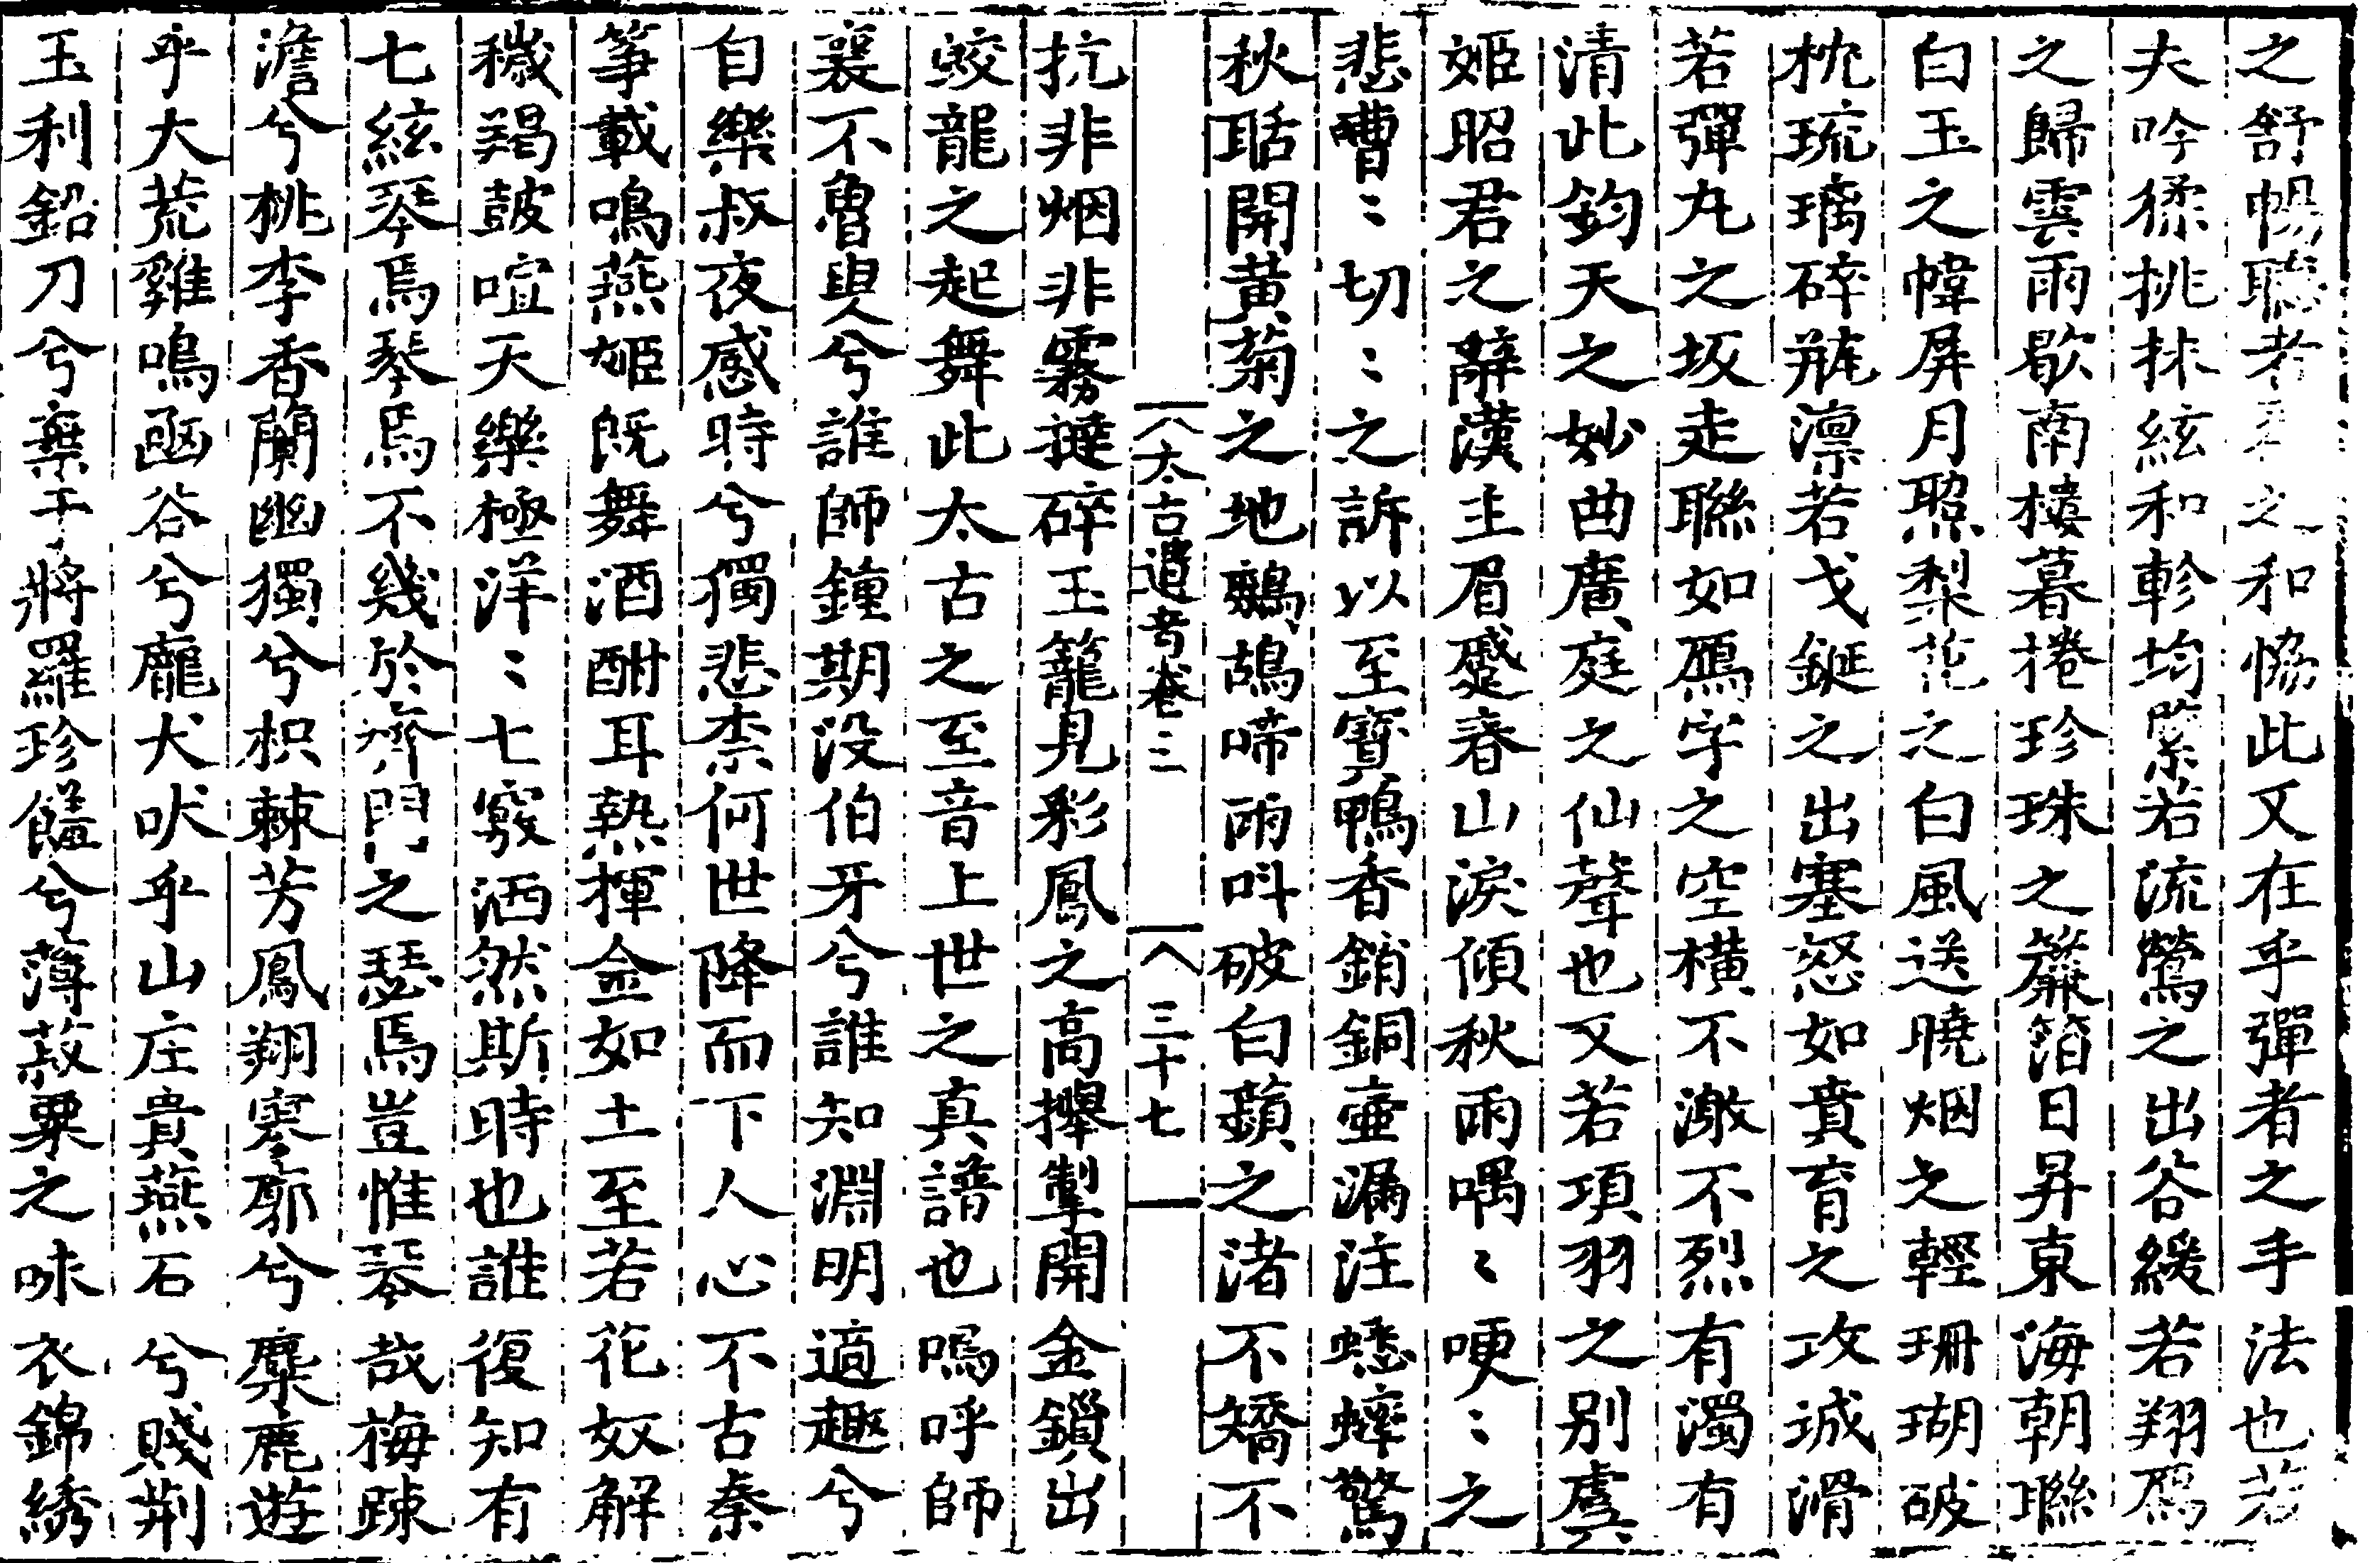 之舒暢聽者之和恊此又在乎彈者之手法也若
夫吟猱挑抹絃和軫均縈若流鶯之出谷緩若翔鴈
之歸雲雨歇南樓暮捲珍珠之簾箔日昇東海朝聯
白玉之幃屏月照梨花之白風送曉烟之輕珊瑚破
枕琉璃碎甁凛若戈鋋之出塞怒如賁育之攻城滑
若彈丸之坂走聯如鴈字之空橫不激不烈有濁有
清此鈞天之妙曲廣庭之仙聲也又若項羽之别虞
姬昭君之辭漢主眉蹙春山淚傾秋雨喁〻哽〻之
悲嘈〻切〻之訴以至寶鴨香銷銅壷漏注蟋蟀驚
秋聒開黃菊之地鷓鴣啼雨呌破白蘋之渚不矯不
太古遺音卷三 三十七
抗非烟非霧撻碎玉籠見彩鳳之高攑掣開金鎻出
蛟龍之起舞此太古之至音上世之真譜也嗚呼師
襄不魯與兮誰師鐘期没伯牙兮誰知淵明適趣兮
自樂叔夜感時兮獨悲柰何世降而下人心不古秦
筝載鳴燕姬旣舞酒酣耳熱揮金如土至若花奴解
穢羯鼓喧天樂極洋〻七竅洒然斯時也誰復知有
七絃琴焉琴焉不幾於齊門之瑟焉豈惟琴哉梅踈
澹兮桃李香蘭幽獨兮枳棘芳鳳翔寥廓兮麋鹿遊
乎大荒雞鳴凾谷兮龎犬吠乎山庄貴燕石兮賤荆
玉利鉛刀兮棄干將羅珍饈兮薄菽粟之味衣錦綉